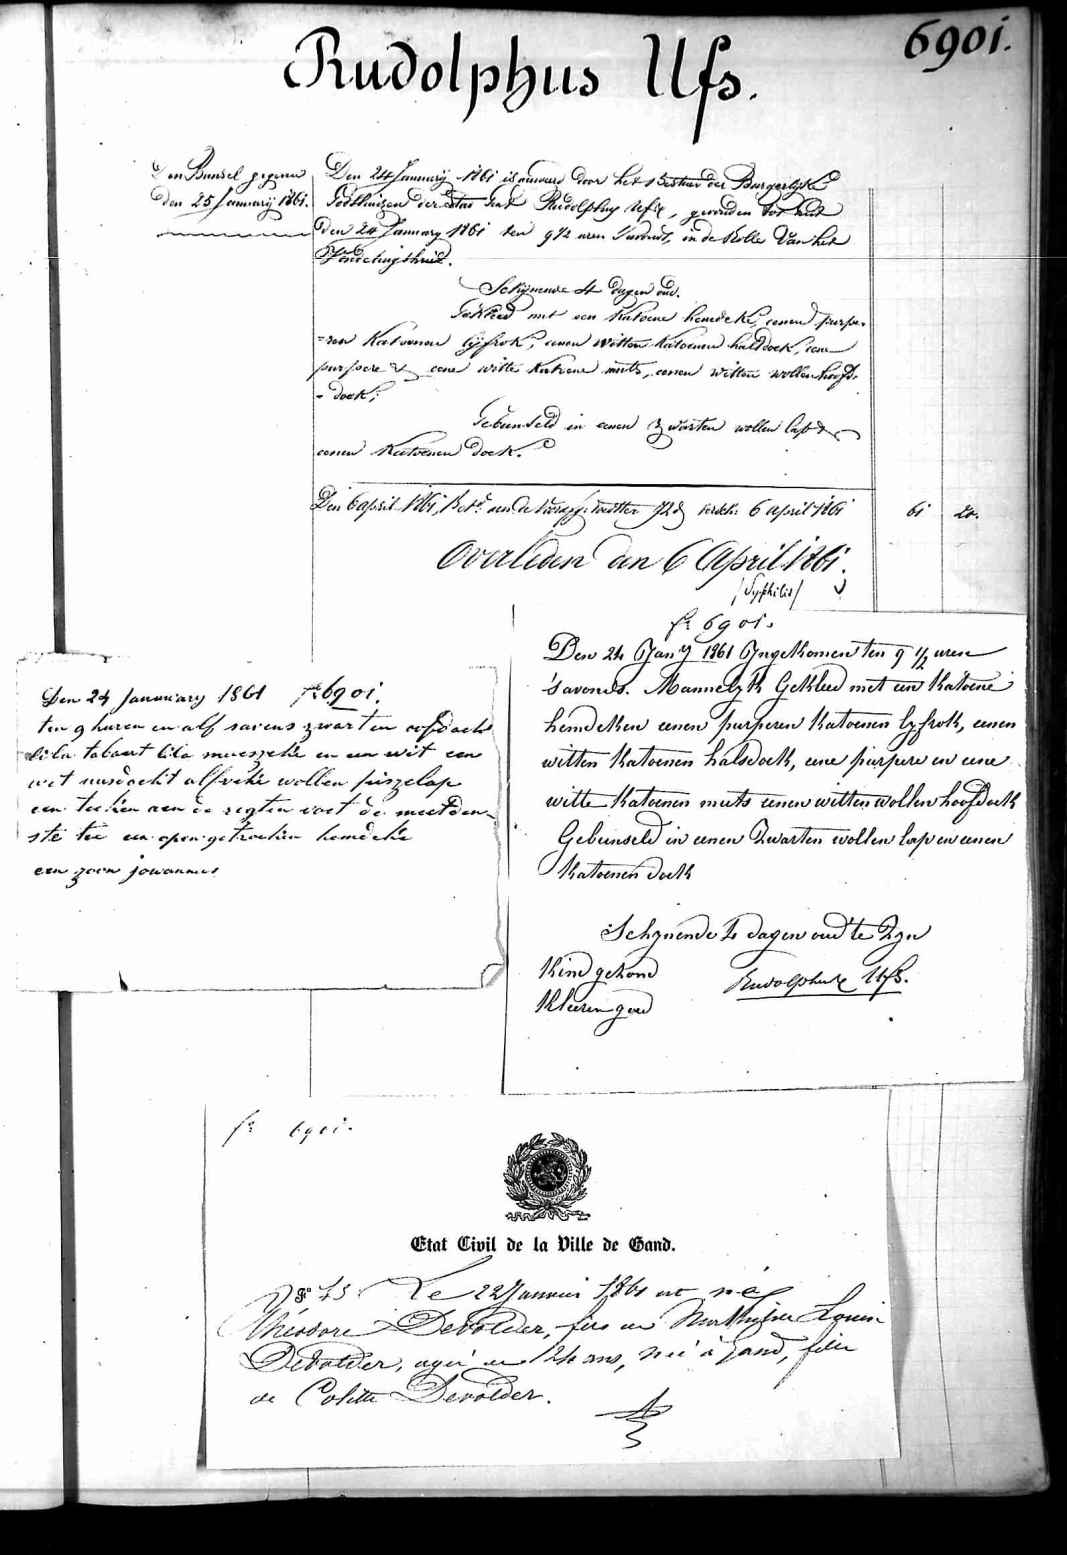 6901.
Rudolphus Ufs.
Den Bunsel gegeven
den 25 January 1861.
Den 24 January 1861 is aenveerd door het Bestuer der Burgerlyke
Godshuizen der Stad Gent Rudolphus Ufs, gevonden tot Gent
den 24 January 1861 ten 9 1/2 uren s'avonds, in de Rolle van het
Vondelingshuis.
Schynende 4 dagen oud.
Gekleed met een katoene hemdeke, eenen purpe-
=ren katoenen lyfrok, eenen witten katoenen halsdoek, eene
purpere & eene witte katoene muts, eenen witten wollen hoofd-
- doek;
Gebunseld in eenen zwarten wollen lap &
eenen katoenen doek.
Den 6 april 1861, Bet. aen de 6 april 1861 61 24.
Overleden den 6 April 1861.
/Syphilis/
fr 6901.
Den 24 Jany 1861 Ingekomen ten 9 1/2 uren
's avonds. Mannelyk Gekleed met een katoene
hemdeken eenen purperen katoenen lyfrok, eenen
witten katoenen halsdoek, eene purpere en eene
witte katoenen muts eenen witten wollen hoofdoek
Gebunseld in eenen zwarten wollen lap en eenen
katoenen doek
Schynende 4 dagen oud te zyn
Kind gezond
Rudolphus Ufs.
Kleeren goed
Den 24 Januuary 1861 fr 6901.
ten 9 huren en alf savens zwarten
lila tabaert lila mueszeke en een wit een
wit wollen piszelap
een teeken aen de regten voet de
ste tee een open getrocken hemdeke
een zoon jowannes
fr 6901.
Etat Civil de la Ville de Gand.
Le 22 Janvier 1861 est né
Théodore Devolder, fils de Louis
Devolder, agé de 24 ans, né à Gand, fille
de Colette Devolder.